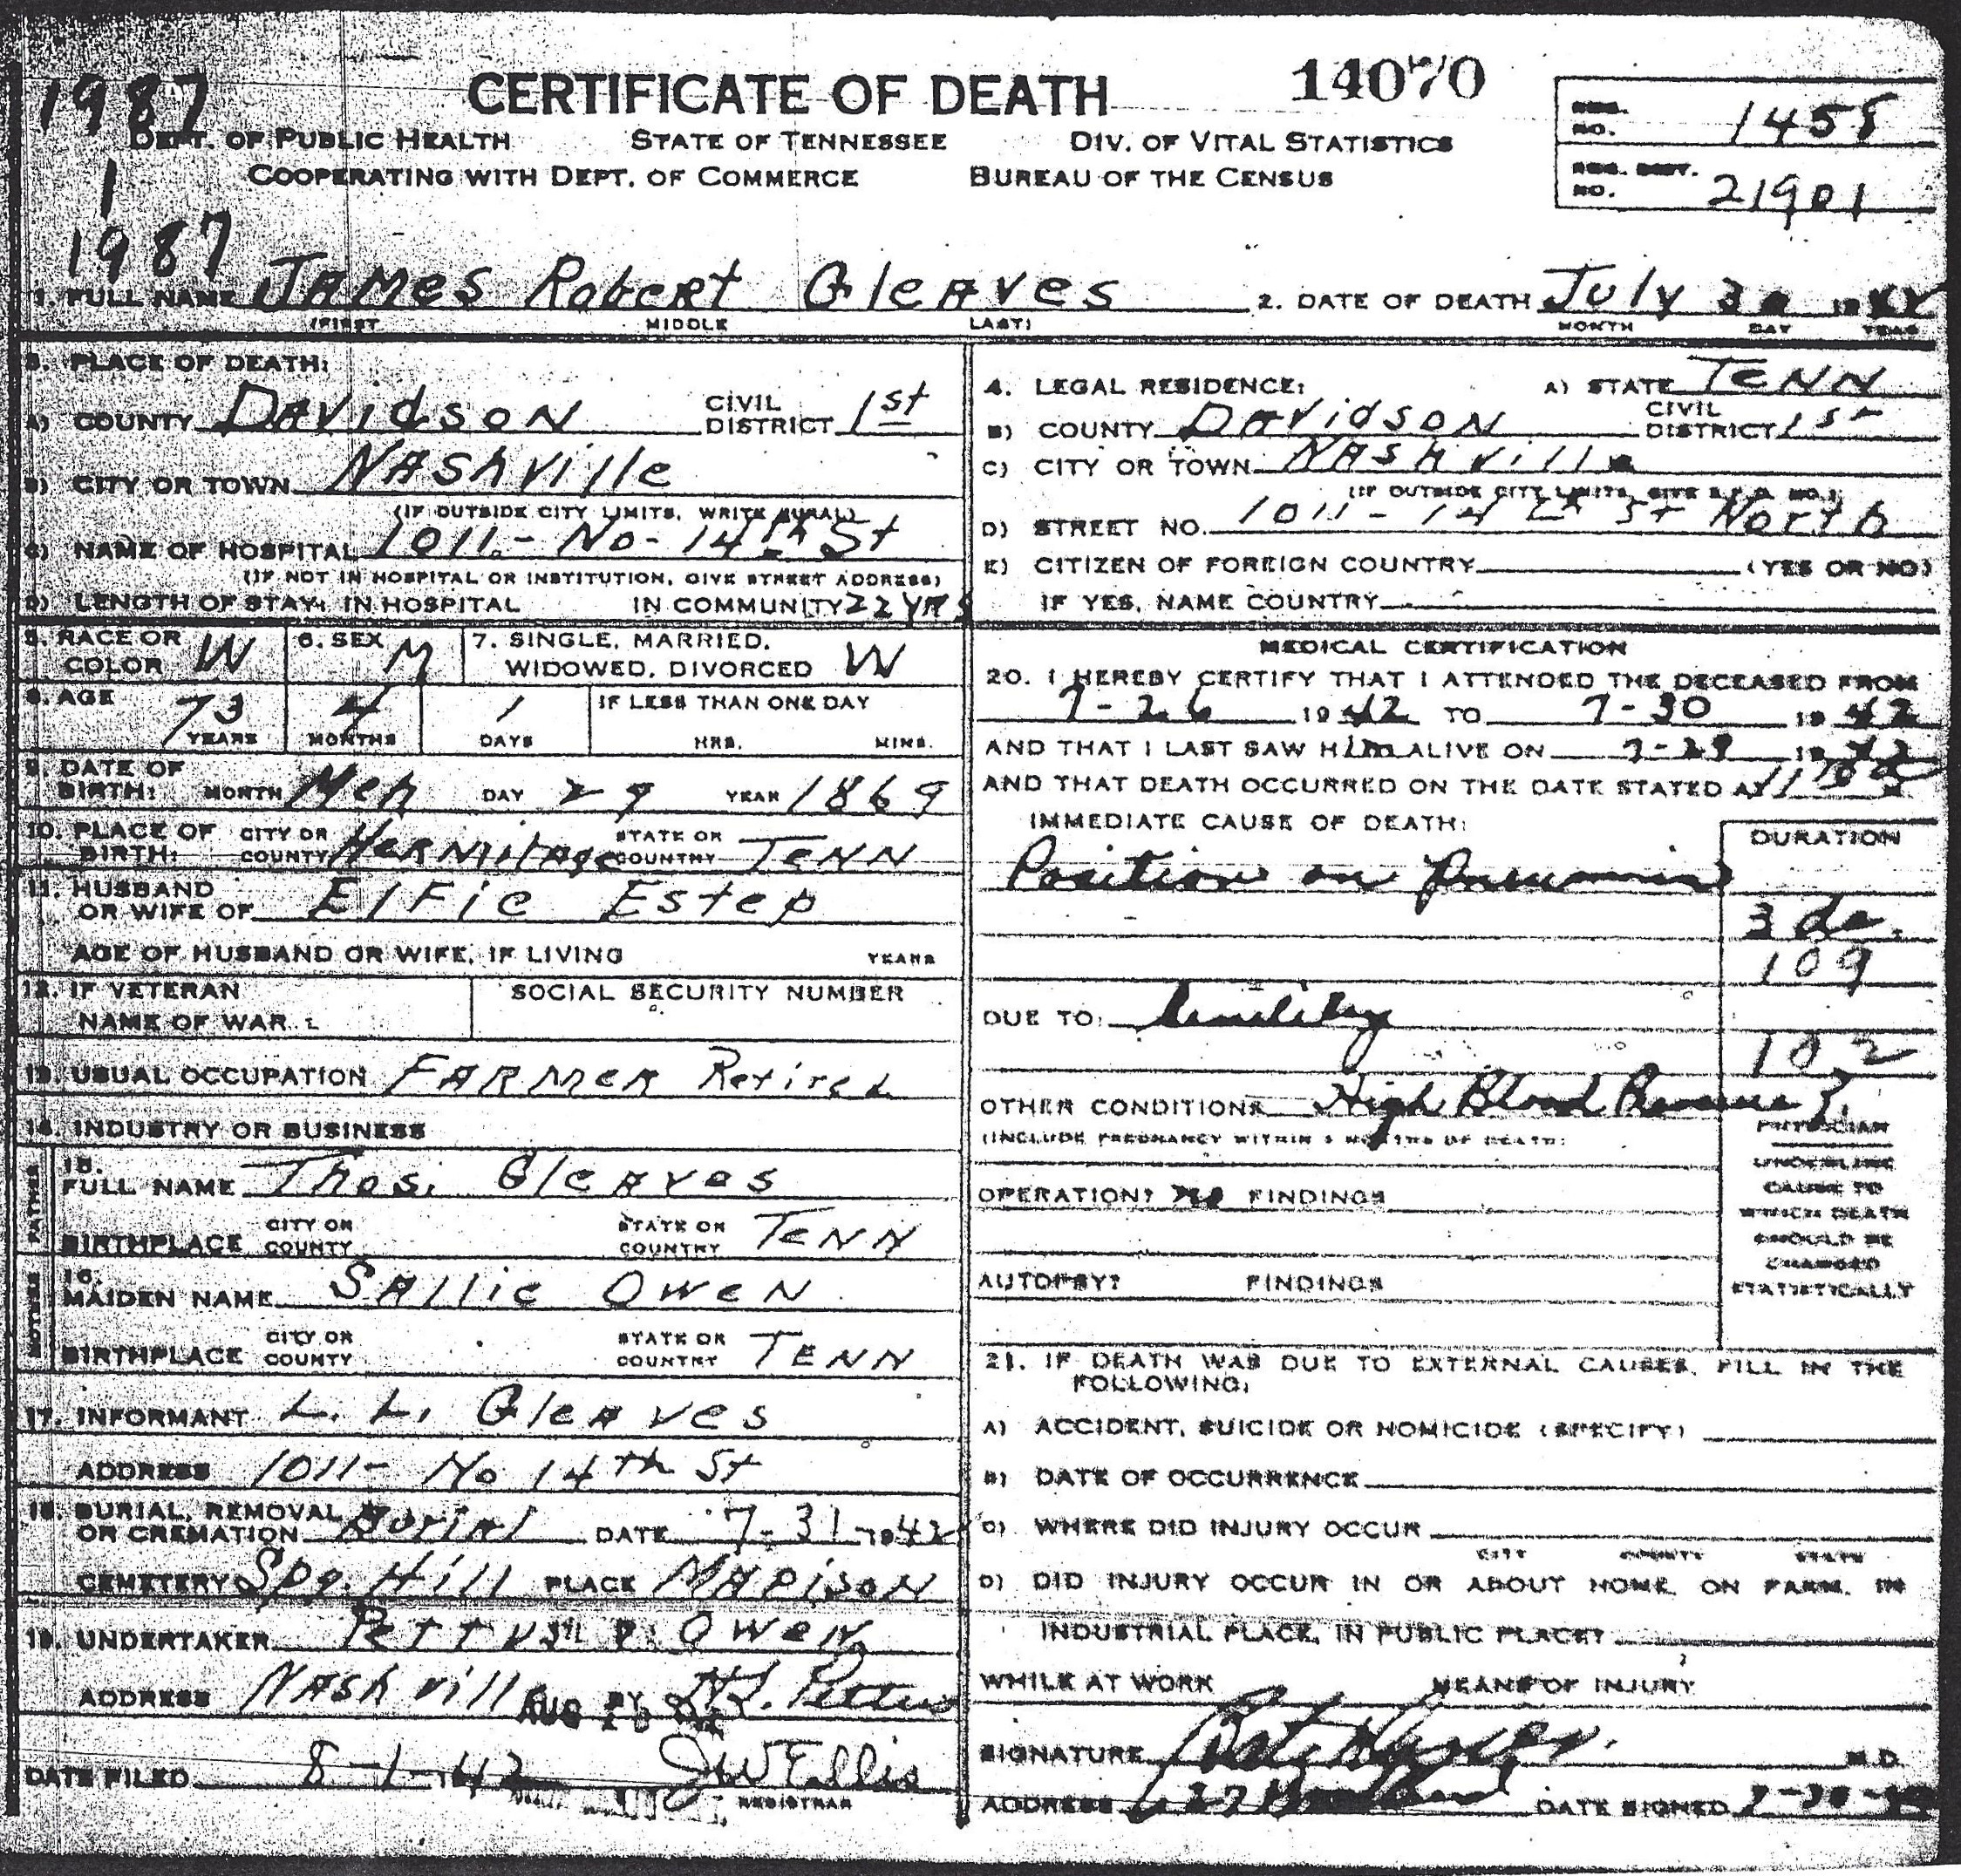 1987
CERTIFICATE OF DEATH 14070
DEPT. OF PUBLIC HEALTH STATE OF TENNESSEE DIV. OF VITAL STATISTICS
COOPERATING WITH DEPT. OF COMMERCE BUREAU OF THE CENSUS
REG. NO. 1458
REG. DIST. NO. 21901
1
1987
1. FULL NAME JAMES Robert GleAves 2. DATE OF DEATH July 30
(FIRST MIDDLE LAST) MONTH DAY YEAR
3. PLACE OF DEATH:
A) COUNTY DAvidsoN CIVIL DISTRICT 1st
B) CITY OR TOWN NAshville
(IF OUTSIDE CITY LIMITS, WRITE RURAL)
C) NAME OF HOSPITAL 1011 - No - 14th St
(IF NOT IN HOSPITAL OR INSTITUTION, GIVE STREET ADDRESS)
D) LENGTH OF STAY: IN HOSPITAL IN COMMUNITY 22 YRS
4. LEGAL RESIDENCE: A) STATE TENN
B) COUNTY DAvidsoN CIVIL DISTRICT 1st
C) CITY OR TOWN NAshville
(IF OUTSIDE CITY LIMITS, GIVE R.F.D. NO.)
D) STREET NO. 1011 - 14th St North
E) CITIZEN OF FOREIGN COUNTRY (YES OR NO)
IF YES, NAME COUNTRY
5. RACE OR COLOR W 6. SEX M 7. SINGLE, MARRIED, WIDOWED, DIVORCED W
8. AGE 73 YEARS 4 MONTHS 1 DAYS IF LESS THAN ONE DAY HRS. MINS.
9. DATE OF BIRTH: MONTH Mch DAY 29 YEAR 1869
10. PLACE OF BIRTH: CITY OR COUNTY HermitAge STATE OR COUNTRY TENN
11. HUSBAND OR WIFE OF ElFie Estep
AGE OF HUSBAND OR WIFE, IF LIVING YEARS
12. IF VETERAN NAME OF WAR SOCIAL SECURITY NUMBER
13. USUAL OCCUPATION FARMER Retired
14. INDUSTRY OR BUSINESS
FATHER
15. FULL NAME Thos. GleAves
BIRTHPLACE CITY OR COUNTY STATE OR COUNTRY TENN
MOTHER
16. MAIDEN NAME SAllie Owen
BIRTHPLACE CITY OR COUNTY STATE OR COUNTRY TENN
17. INFORMANT L. L. GleAves
ADDRESS 1011 - No 14th St
18. BURIAL, REMOVAL OR CREMATION BuriAl DATE 7-31-1942
CEMETERY Spg. Hill PLACE MADisoN
19. UNDERTAKER Pettus & Owen
ADDRESS NAshville BY Pettus
AUG
DATE FILED 8-1-1942 J W Ellis
REGISTRAR
MEDICAL CERTIFICATION
20. I HEREBY CERTIFY THAT I ATTENDED THE DECEASED FROM
7-26 1942 TO 7-30 1942
AND THAT I LAST SAW HIM ALIVE ON 7-29 1942
AND THAT DEATH OCCURRED ON THE DATE STATED AT
IMMEDIATE CAUSE OF DEATH: DURATION
Position on Pneumonia
3 da.
109
DUE TO: Senility
102
OTHER CONDITIONS High Blood Pressure
(INCLUDE PREGNANCY WITHIN 3 MONTHS OF DEATH)
OPERATION? No FINDINGS
AUTOPSY? FINDINGS
PHYSICIAN
UNDERLINE
CAUSE TO
WHICH DEATH
SHOULD BE
CHARGED
STATISTICALLY
21. IF DEATH WAS DUE TO EXTERNAL CAUSES, FILL IN THE
FOLLOWING:
A) ACCIDENT, SUICIDE OR HOMICIDE (SPECIFY)
B) DATE OF OCCURRENCE
C) WHERE DID INJURY OCCUR
CITY COUNTY STATE
D) DID INJURY OCCUR IN OR ABOUT HOME, ON FARM, IN
INDUSTRIAL PLACE, IN PUBLIC PLACE?
WHILE AT WORK MEANS OF INJURY
SIGNATURE M.D.
ADDRESS DATE SIGNED 7-30-42